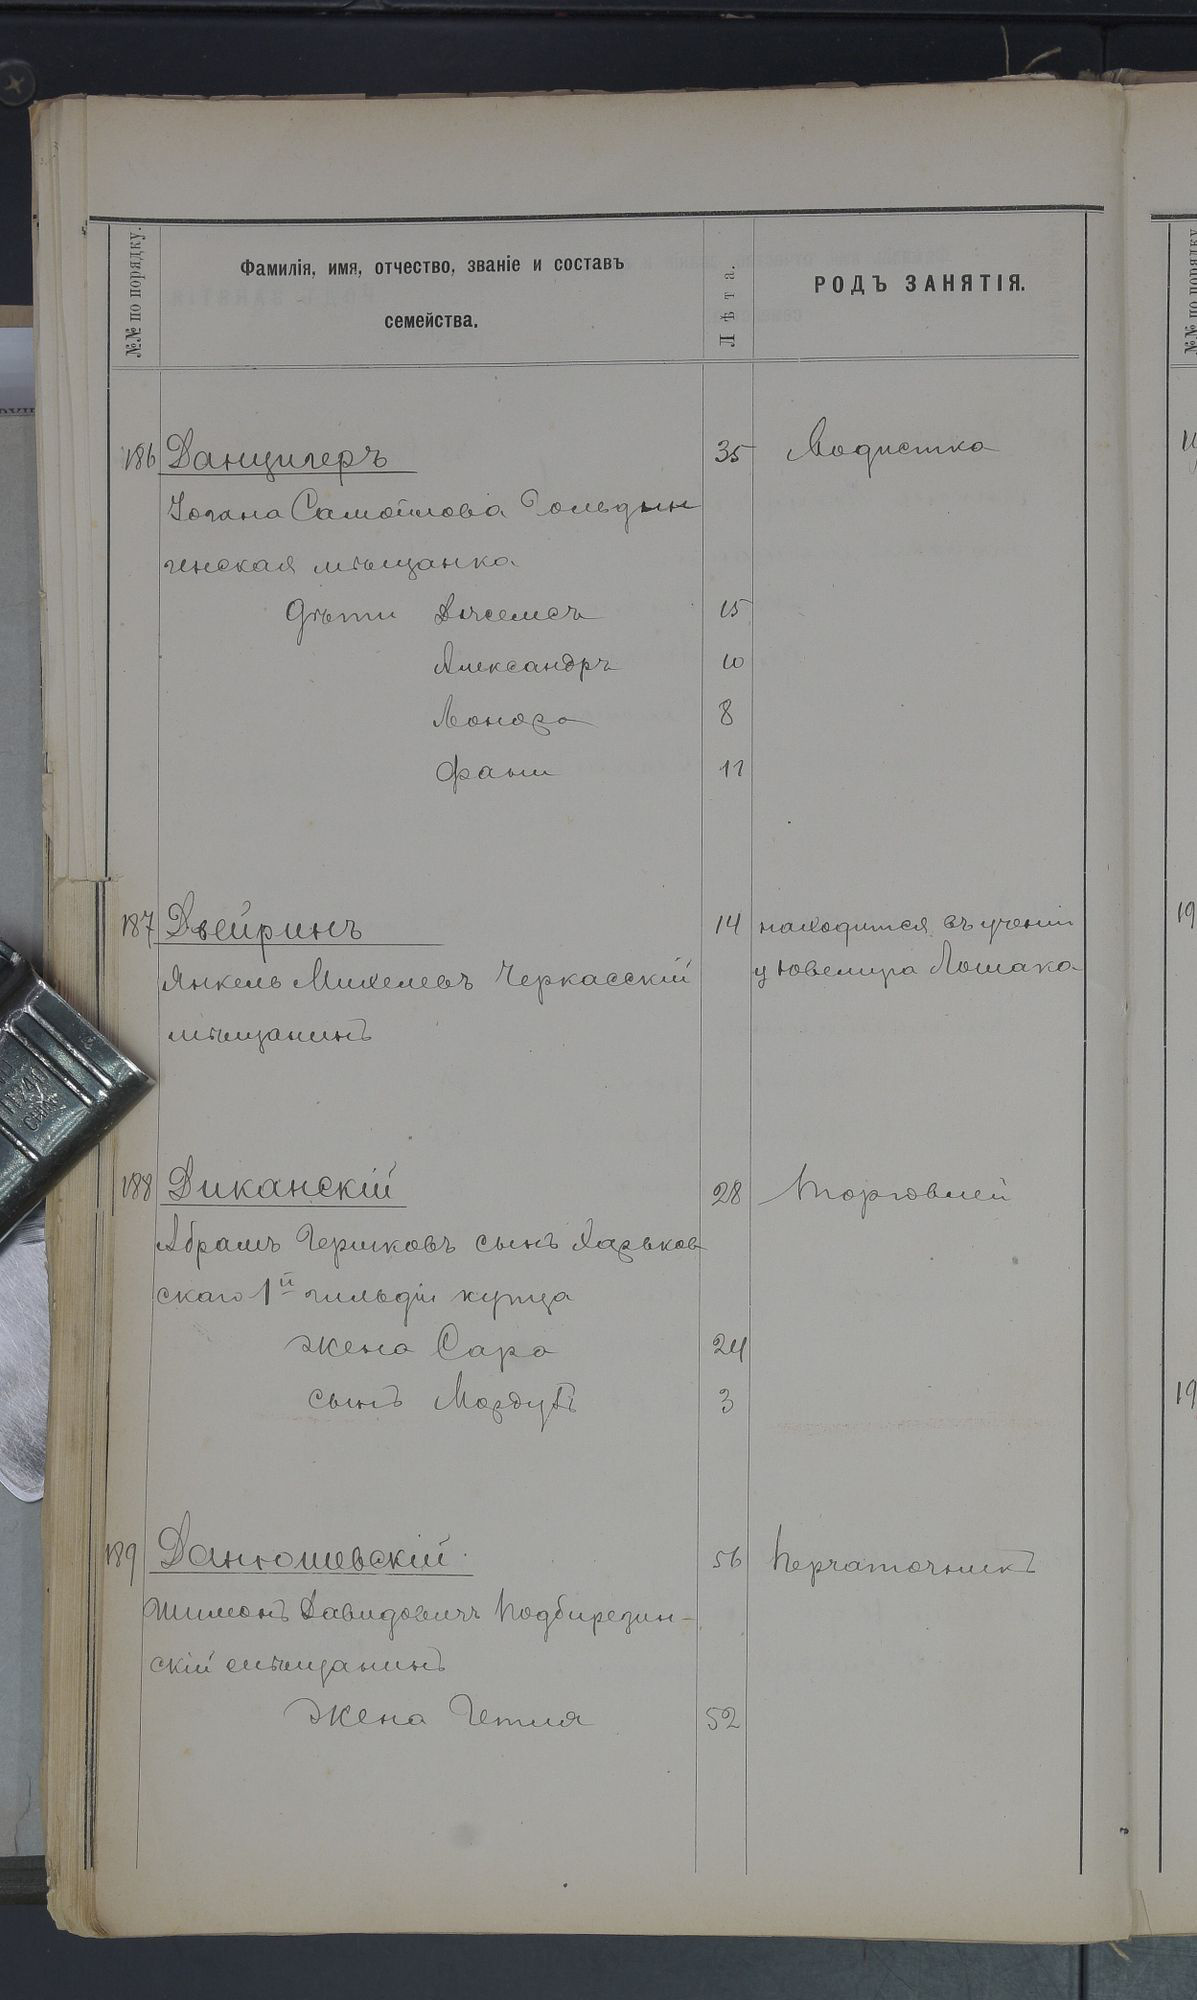 №№ по порядку.
Фамилія, имя, отчество, званіе и составъ
семейства.
Лѣта.
РОДЪ ЗАНЯТІЯ.
186 Данцигеръ 35 Модистка
Іогана Самойлова Гольдин
генская мѣщанка
дѣти 15
Александръ 10
8
Фани 11
187 Двейринъ 14 находится въ ученіи
Янкель Михелевъ Черкасскій у ювелира Лошака
мѣщанинъ
188 Диканскій 28 торговлей
Абрамъ Гершковъ сынъ Харьков
скаго 1й гильдіи купца
жена Сара 24
сынъ Мордухъ 3
189 Данюшевскій 56 перчаточникъ
Шимонъ Давидовичъ Подбирезин-
скій мѣщанинъ
жена Гетля 52
№№ по порядку
19
19